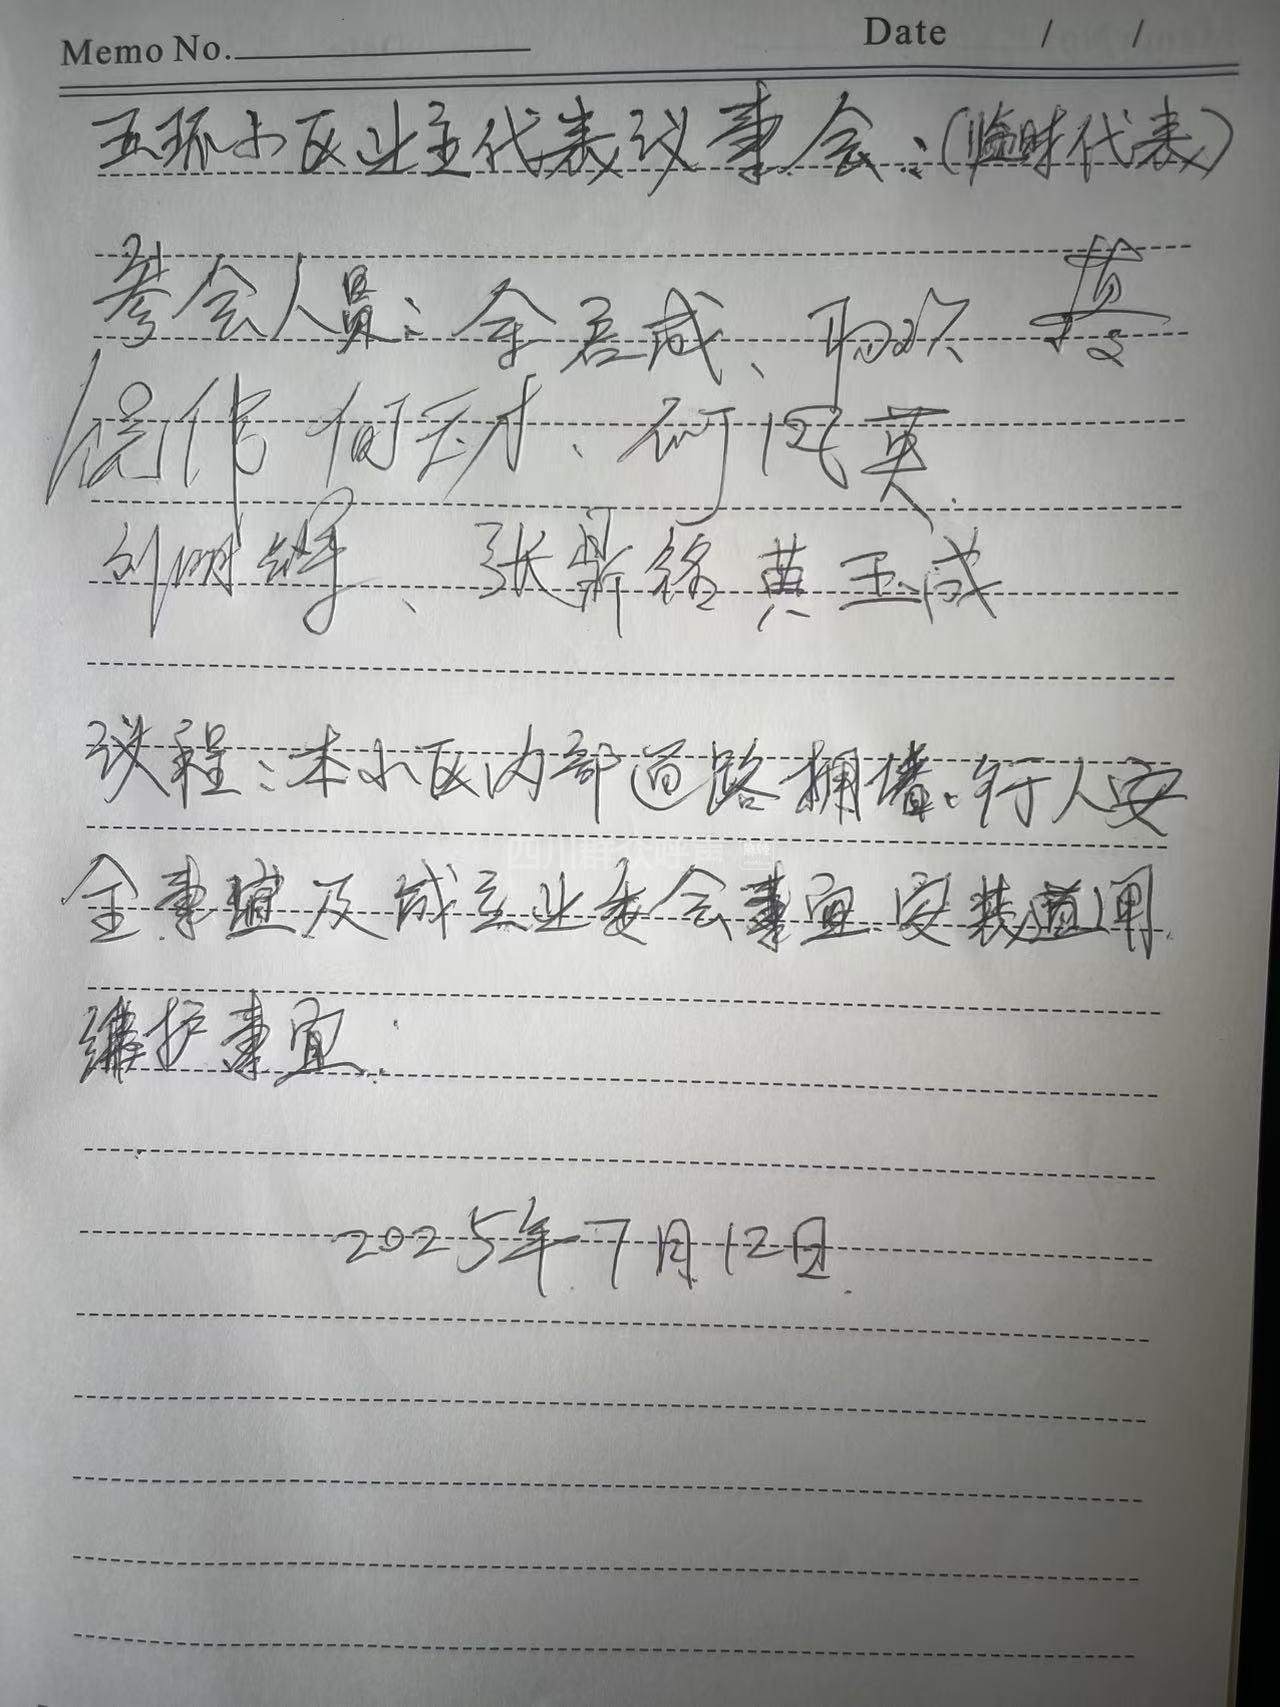 Memo No. Date / /
五环小区业主代表议事会:(临时代表)
参会人员:余君成、
倪伟 何玉才、何门英
刘明辉、张鼎铭 黄玉成
议程:本小区内部道路拥堵、行人安
全事谊及成立业委会事宜、安装道闸
维护事宜.
四川群众呼声
2025年7月12日.